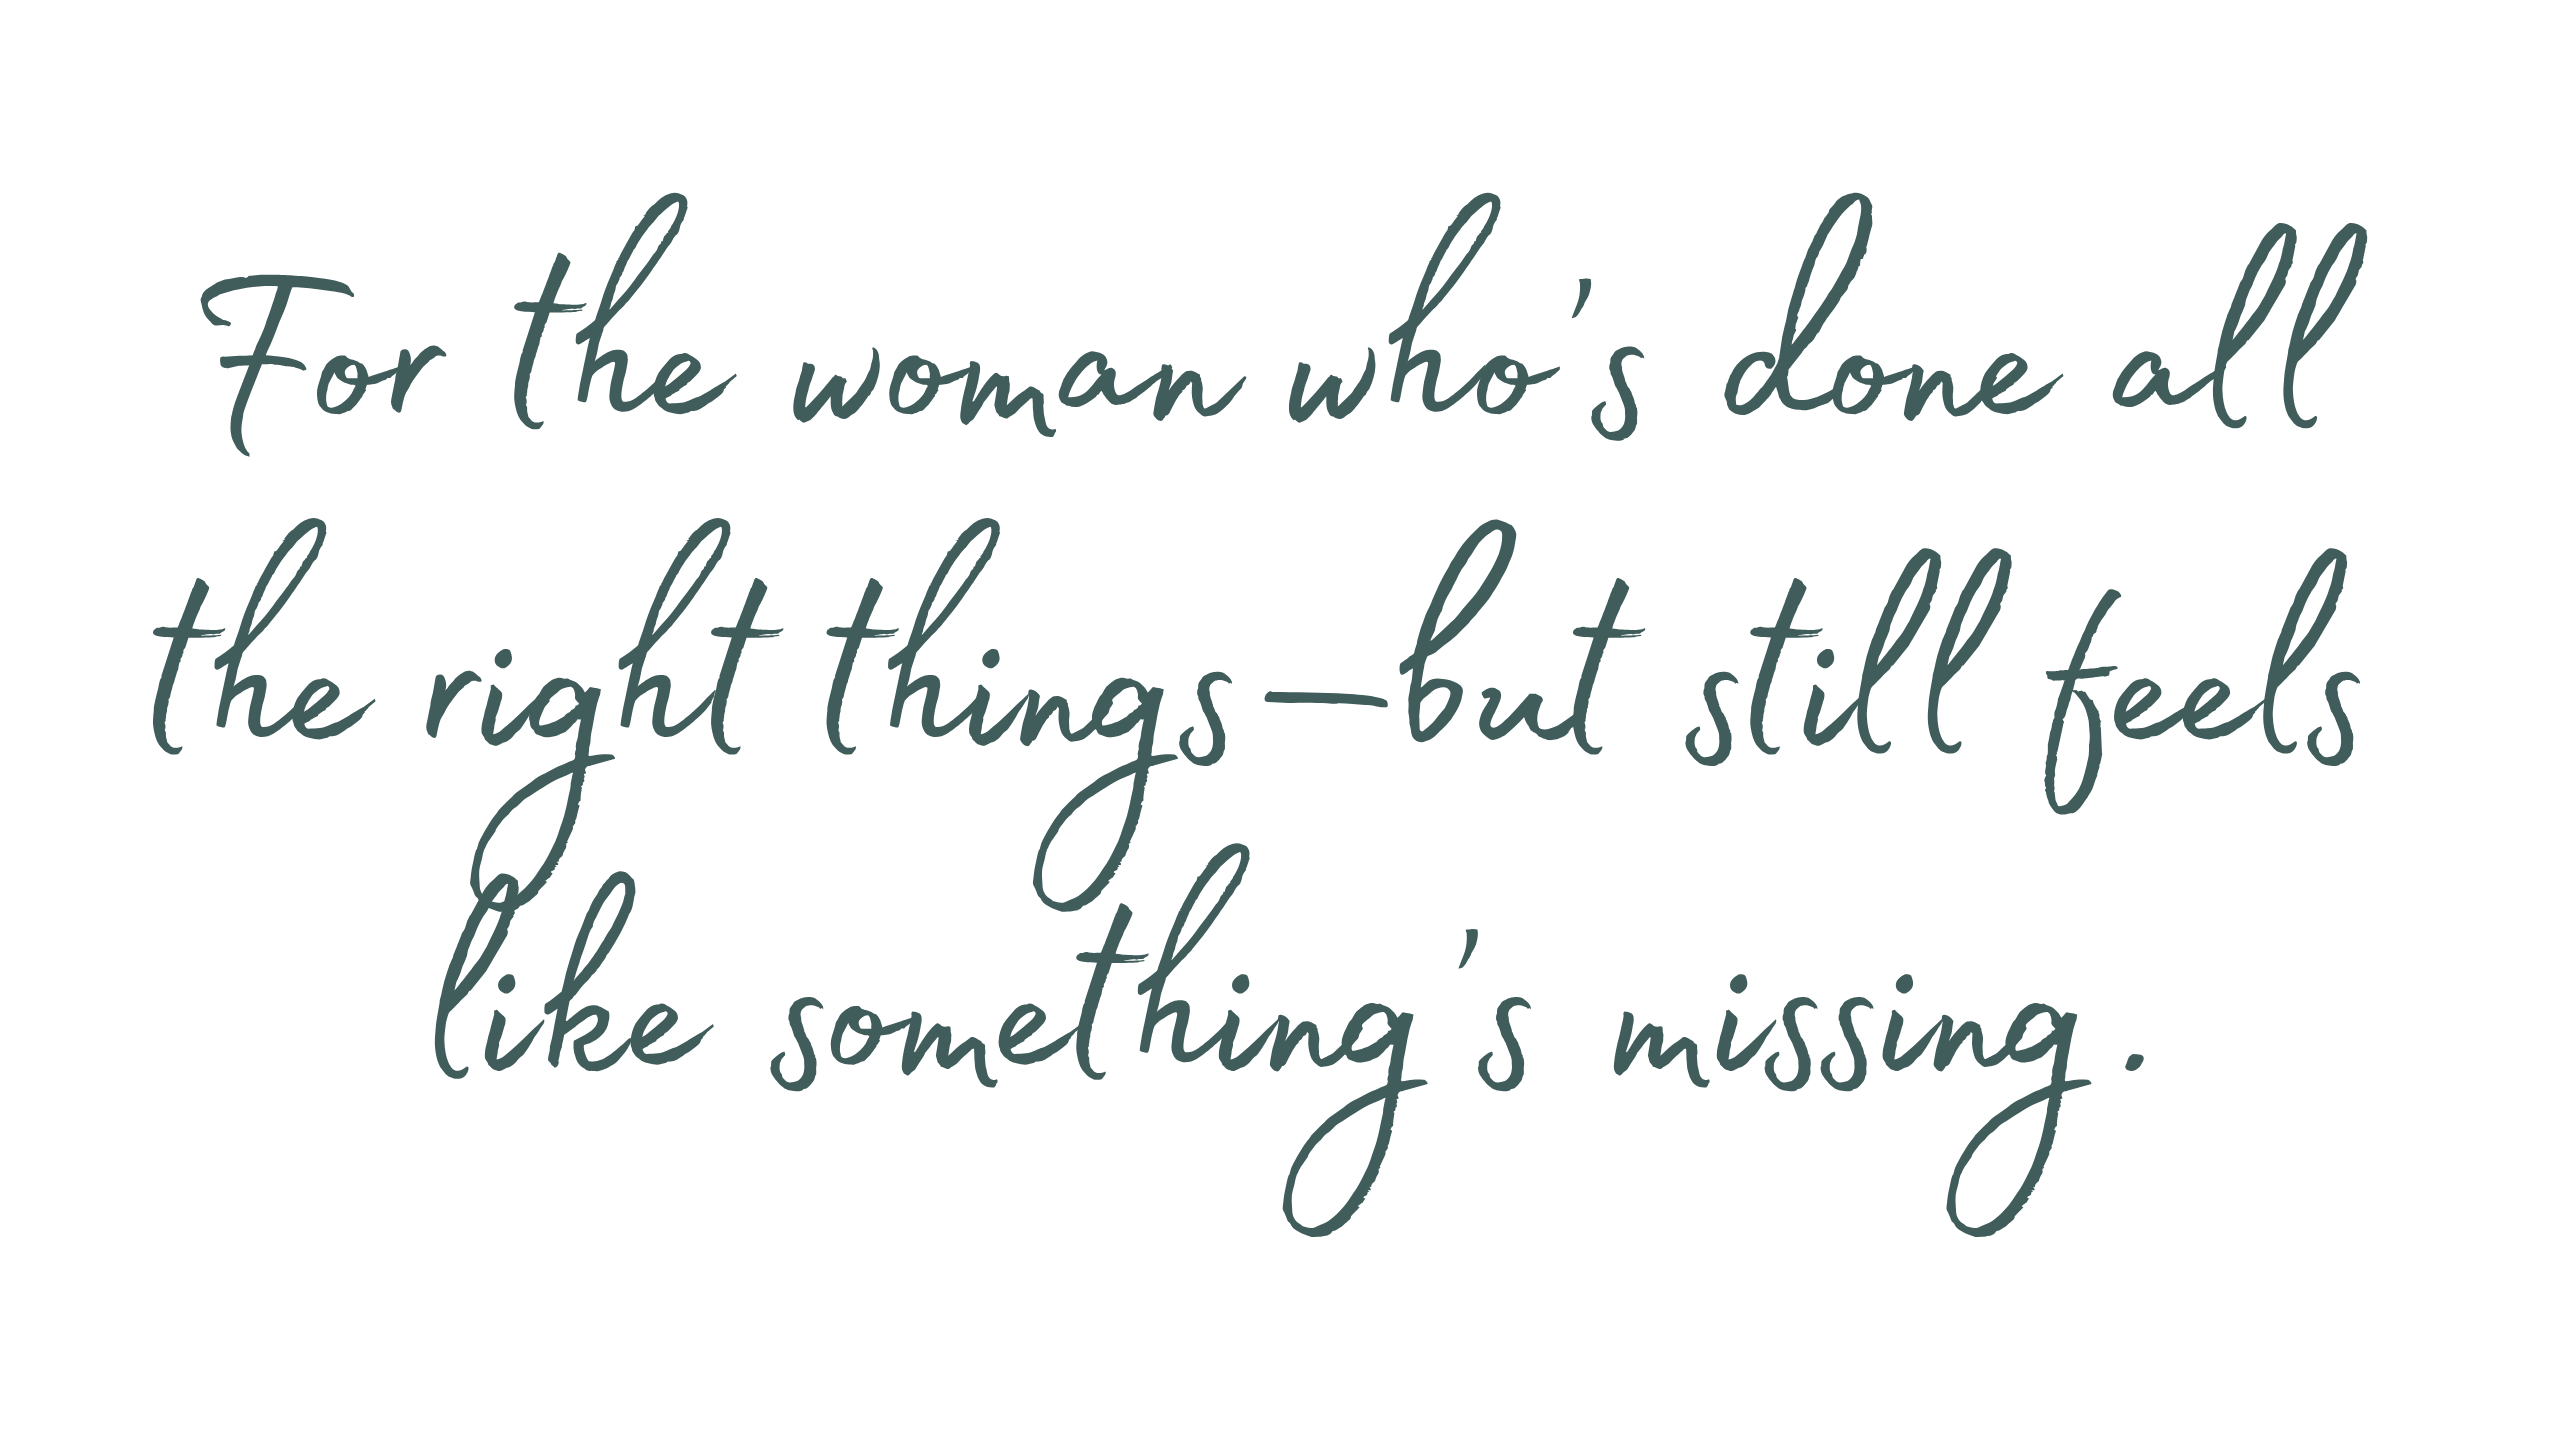 For the woman who's done all
the right things—but still feels
like something's missing.